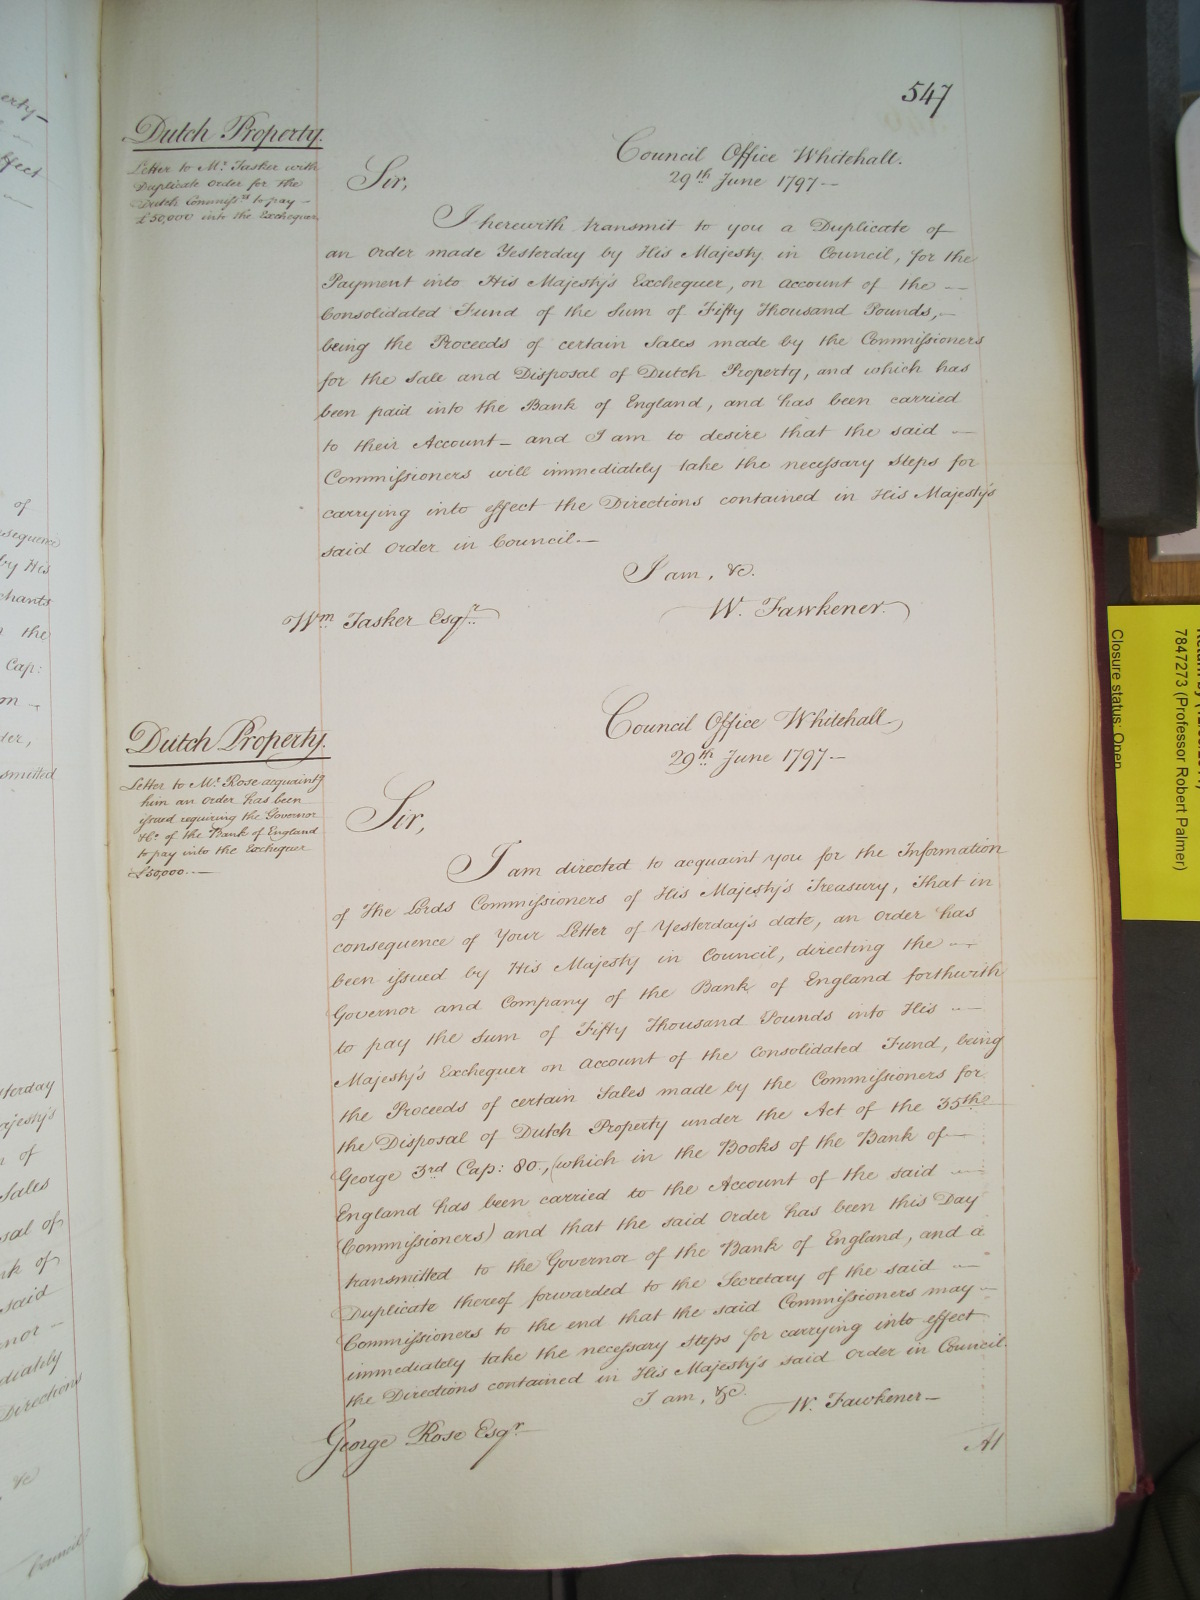 547
Dutch Property.
Letter to Mr. Tasker with
Duplicate Order for the
Dutch Commissrs to pay —
£50,000 into the Exchequer
Council Office Whitehall.
29th June 1797 —
Sir,
I herewith transmit to you a Duplicate of
an Order made Yesterday by His Majesty in Council, for the
Payment into His Majesty's Exchequer, on account of the —
Consolidated Fund of the Sum of Fifty Thousand Pounds, —
being the Proceeds of certain Sales made by the Commissioners
for the Sale and Disposal of Dutch Property, and which has
been paid into the Bank of England, and has been carried
to their Account — and I am to desire that the said —
Commissioners will immediately take the necessary Steps for
carrying into effect the Directions contained in His Majesty's
said Order in Council. —
I am, &c.
W. Fawkener.
Wm Tasker Esqr.
Dutch Property.
Letter to Mr. Rose acquaintg
him an Order has been
issued requiring the Governor
&Co. of the Bank of England
to pay into the Exchequer
£50,000. —
Council Office Whitehall,
29th June 1797 —
Sir,
I am directed to acquaint you for the Information
of The Lords Commissioners of His Majesty's Treasury, That in
consequence of Your Letter of Yesterday's date, an Order has
been issued by His Majesty in Council, directing the —
Governor and Company of the Bank of England forthwith
to pay the Sum of Fifty Thousand Pounds into His —
Majesty's Exchequer on account of the Consolidated Fund, being
the Proceeds of certain Sales made by the Commissioners for
the Disposal of Dutch Property under the Act of the 35th
George 3rd Cap: 80, (which in the Books of the Bank of —
England has been carried to the Account of the said —
Commissioners) and that the said Order has been this Day
transmitted to the Governor of the Bank of England, and a
Duplicate thereof forwarded to the Secretary of the said —
Commissioners to the end that the said Commissioners may —
immediately take the necessary steps for carrying into effect
the Directions contained in His Majesty's said Order in Council.
I am, &c.
W. Fawkener —
George Rose Esqr
At
7847273 (Professor Robert Palmer)
Closure status: Open
of
by His
chants
the
Cap:
on —
smitted
of
Sales
said
Directions
&c